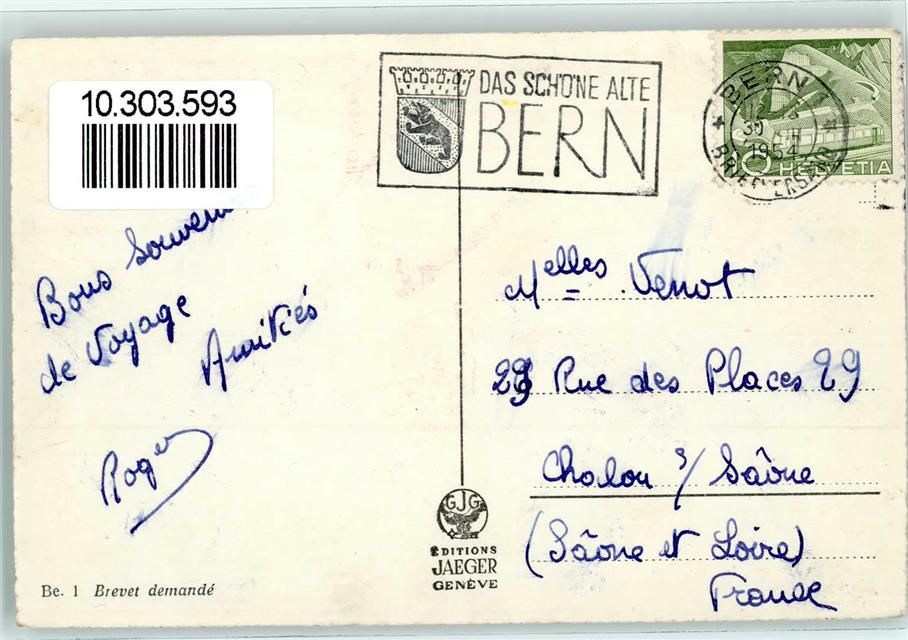 10.303.593
DAS SCHÖNE ALTE
BERN
BERN
1954
BRIEFVERSAND
5 HELVETIA
Bons Souvenirs
de Voyage
Amitiés
Roger
Melles Venot
29 Rue des Places 29
Chalon s/ Saône
(Saône et Loire)
France
GJG
EDITIONS
JAEGER
GENÈVE
Be. 1 Brevet demandé